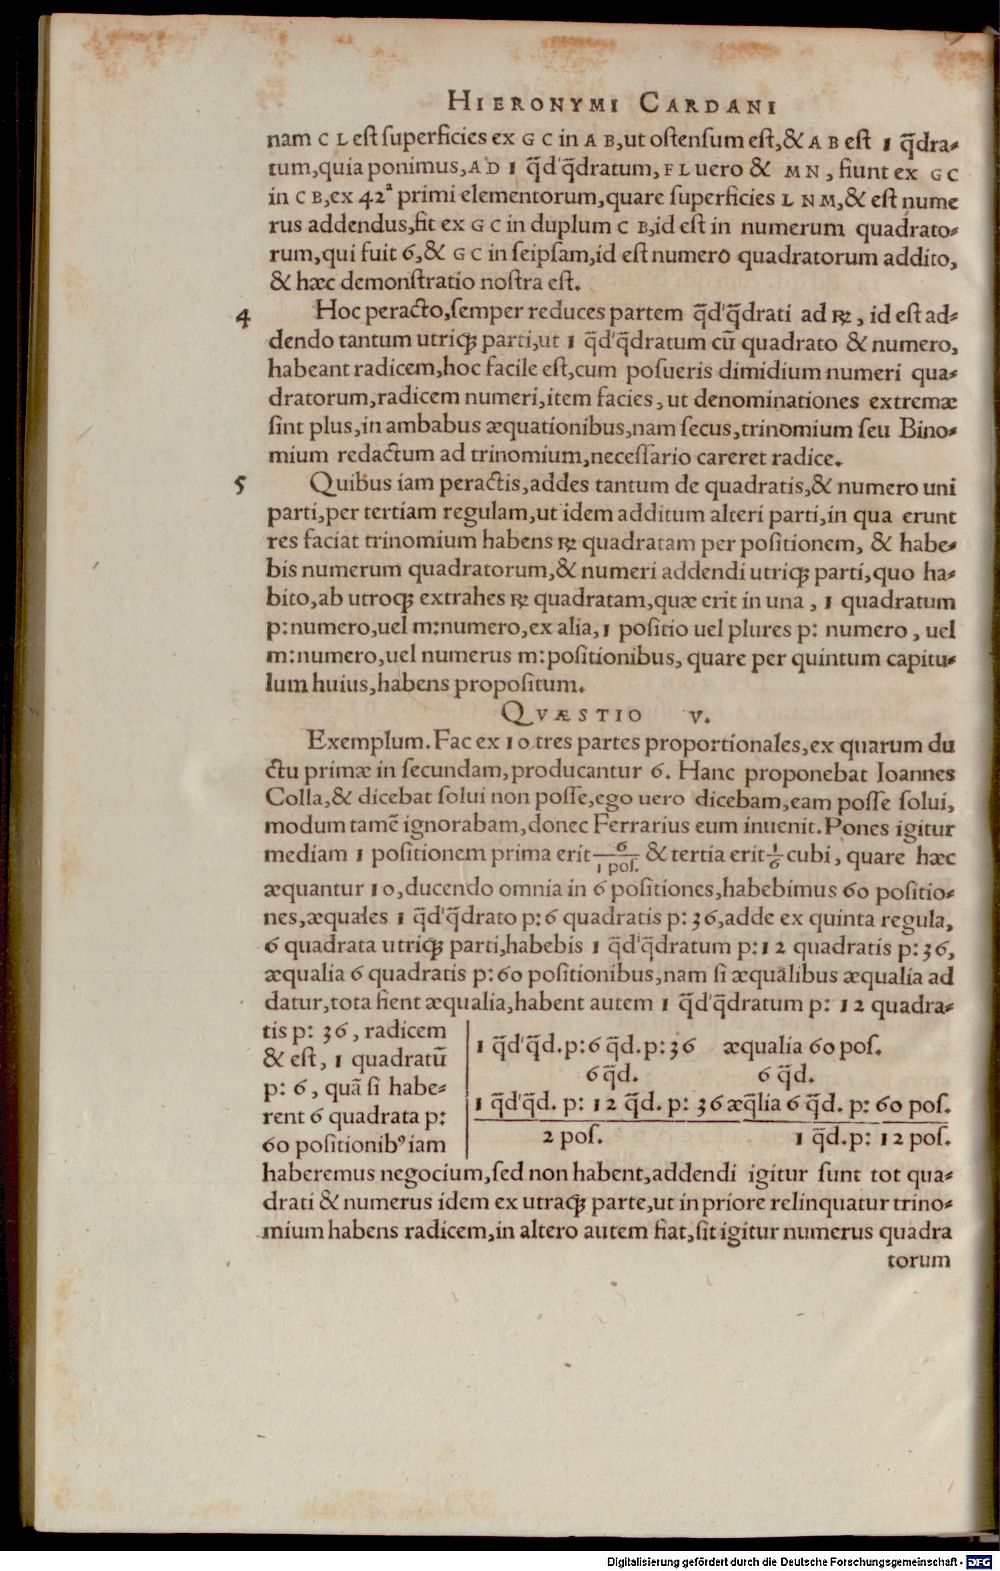 HIERONYMI CARDANI
nam C L est superficies ex G C in A B, ut ostensum est, & A B est 1 q̃dra-
tum, quia ponimus, A D 1 q̃d'q̃dratum, F L uero & M N, fiunt ex G C
in C B, ex 42ª primi elementorum, quare superficies L N M, & est nume
rus addendus, fit ex G C in duplum C B, id est in numerum quadrato-
rum, qui fuit 6, & G C in seipsam, id est numero quadratorum addito,
& hæc demonstratio nostra est.
4 Hoc peracto, semper reduces partem q̃d'q̃drati ad ℞, id est ad-
dendo tantum utriq; parti, ut 1 q̃d'q̃dratum cũ quadrato & numero,
habeant radicem, hoc facile est, cum posueris dimidium numeri qua-
dratorum, radicem numeri, item facies, ut denominationes extremæ
sint plus, in ambabus æquationibus, nam secus, trinomium seu Bino-
mium redactum ad trinomium, necessario careret radice.
5 Quibus iam peractis, addes tantum de quadratis, & numero uni
parti, per tertiam regulam, ut idem additum alteri parti, in qua erunt
res faciat trinomium habens ℞ quadratam per positionem, & habe-
bis numerum quadratorum, & numeri addendi utriq; parti, quo ha-
bito, ab utroq; extrahes ℞ quadratam, quæ erit in una, 1 quadratum
p: numero, uel m: numero, ex alia, 1 positio uel plures p: numero, uel
m: numero, uel numerus m: positionibus, quare per quintum capitu-
lum huius, habens propositum.
QVÆSTIO V.
Exemplum. Fac ex 10 tres partes proportionales, ex quarum du
ctu primæ in secundam, producantur 6. Hanc proponebat Ioannes
Colla, & dicebat solui non posse, ego uero dicebam, eam posse solui,
modum tamẽ ignorabam, donec Ferrarius eum inuenit. Pones igitur
mediam 1 positionem prima erit 6/1 pos. & tertia erit 1/6 cubi, quare hæc
æquantur 10, ducendo omnia in 6 positiones, habebimus 60 positio-
nes, æquales 1 q̃d'q̃drato p: 6 quadratis p: 36, adde ex quinta regula,
6 quadrata utriq; parti, habebis 1 q̃d'q̃dratum p: 12 quadratis p: 36,
æqualia 6 quadratis p: 60 positionibus, nam si æqualibus æqualia ad
datur, tota fient æqualia, habent autem 1 q̃d'q̃dratum p: 12 quadra-
tis p: 36, radicem
& est, 1 quadratũ
p: 6, quã si habe-
rent 6 quadrata p:
60 positionib⁹ iam
1 q̃d'q̃d. p: 6 q̃d. p: 36 æqualia 60 pos.
6 q̃d. 6 q̃d.
1 q̃d'q̃d. p: 12 q̃d. p: 36 æq̃lia 6 q̃d. p: 60 pos.
2 pos. 1 q̃d. p: 12 pos.
haberemus negocium, sed non habent, addendi igitur sunt tot qua-
drati & numerus idem ex utraq; parte, ut in priore relinquatur trino-
mium habens radicem, in altero autem fiat, sit igitur numerus quadra
torum
Digitalisierung gefördert durch die Deutsche Forschungsgemeinschaft - DFG